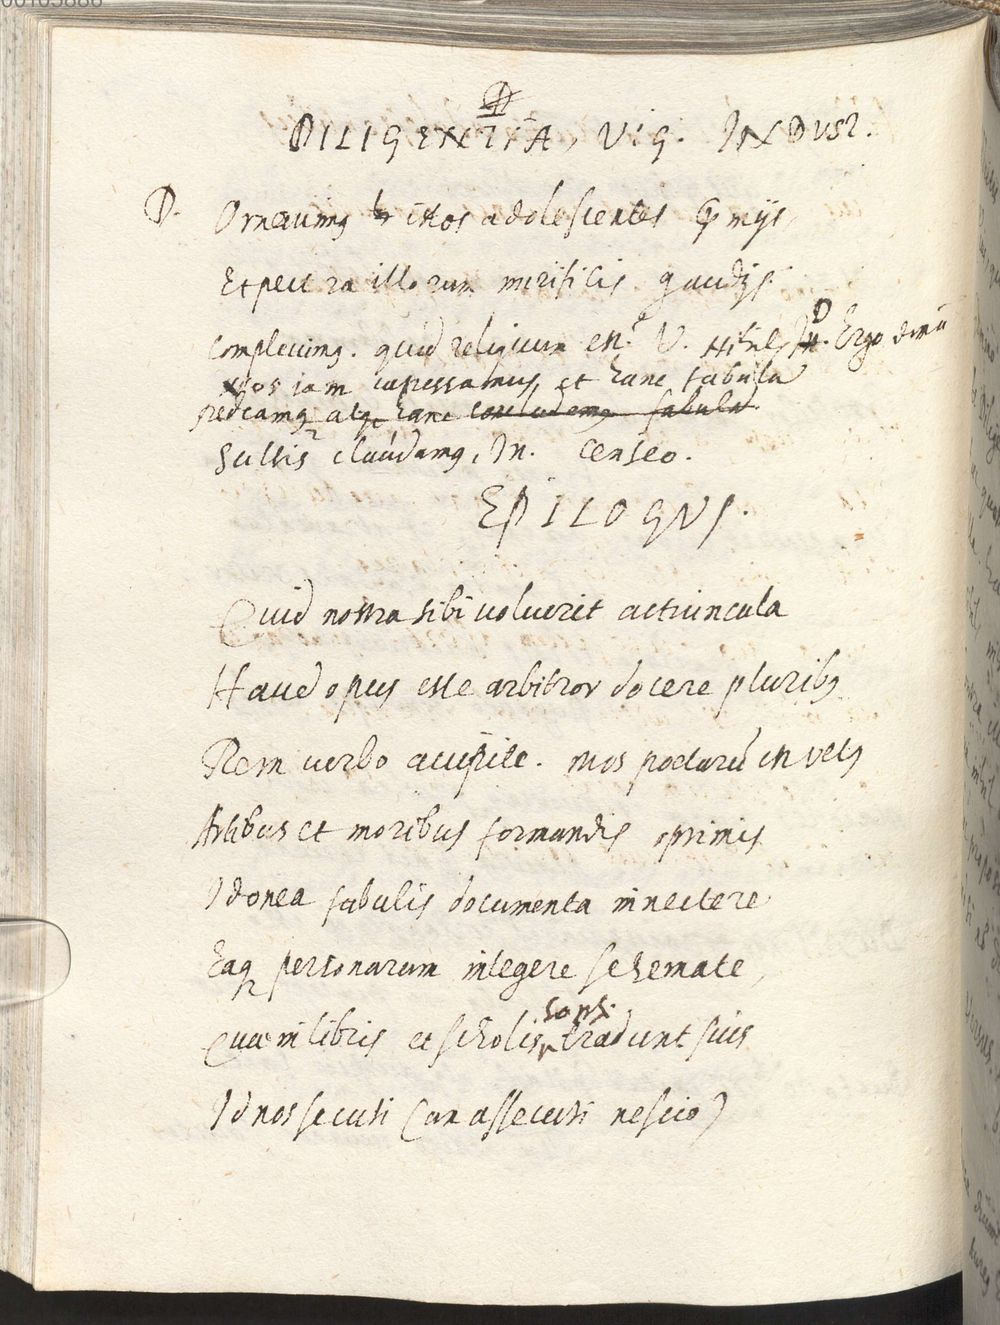 00105886
DILIGENTIA, VIG. INDUST.
D. Ornauimq istos adolescentes pmijs,
Et pectora illorum mirificis gaudijs
Compleuimq. quid reliquum est? V. Nihil. D. Ergo domū
nos iam capessamus, et hanc fabulā
redeamq atq hanc concludamq fabulā
claudamq. In. Censeo.
EPILOGUS.
Quid nostra sibi voluerit actiuncula
Haud opus esse arbitror docere pluribq
Rem verbo accipite. mos poetarū in vetq
Artibus et moribus formandis optimis
Idonea fabulis documenta innectere
Eaq personarum integere schemate,
Quae in libris et scholis sophi tradunt suis
Id nos secuti (an assecuti nescio)